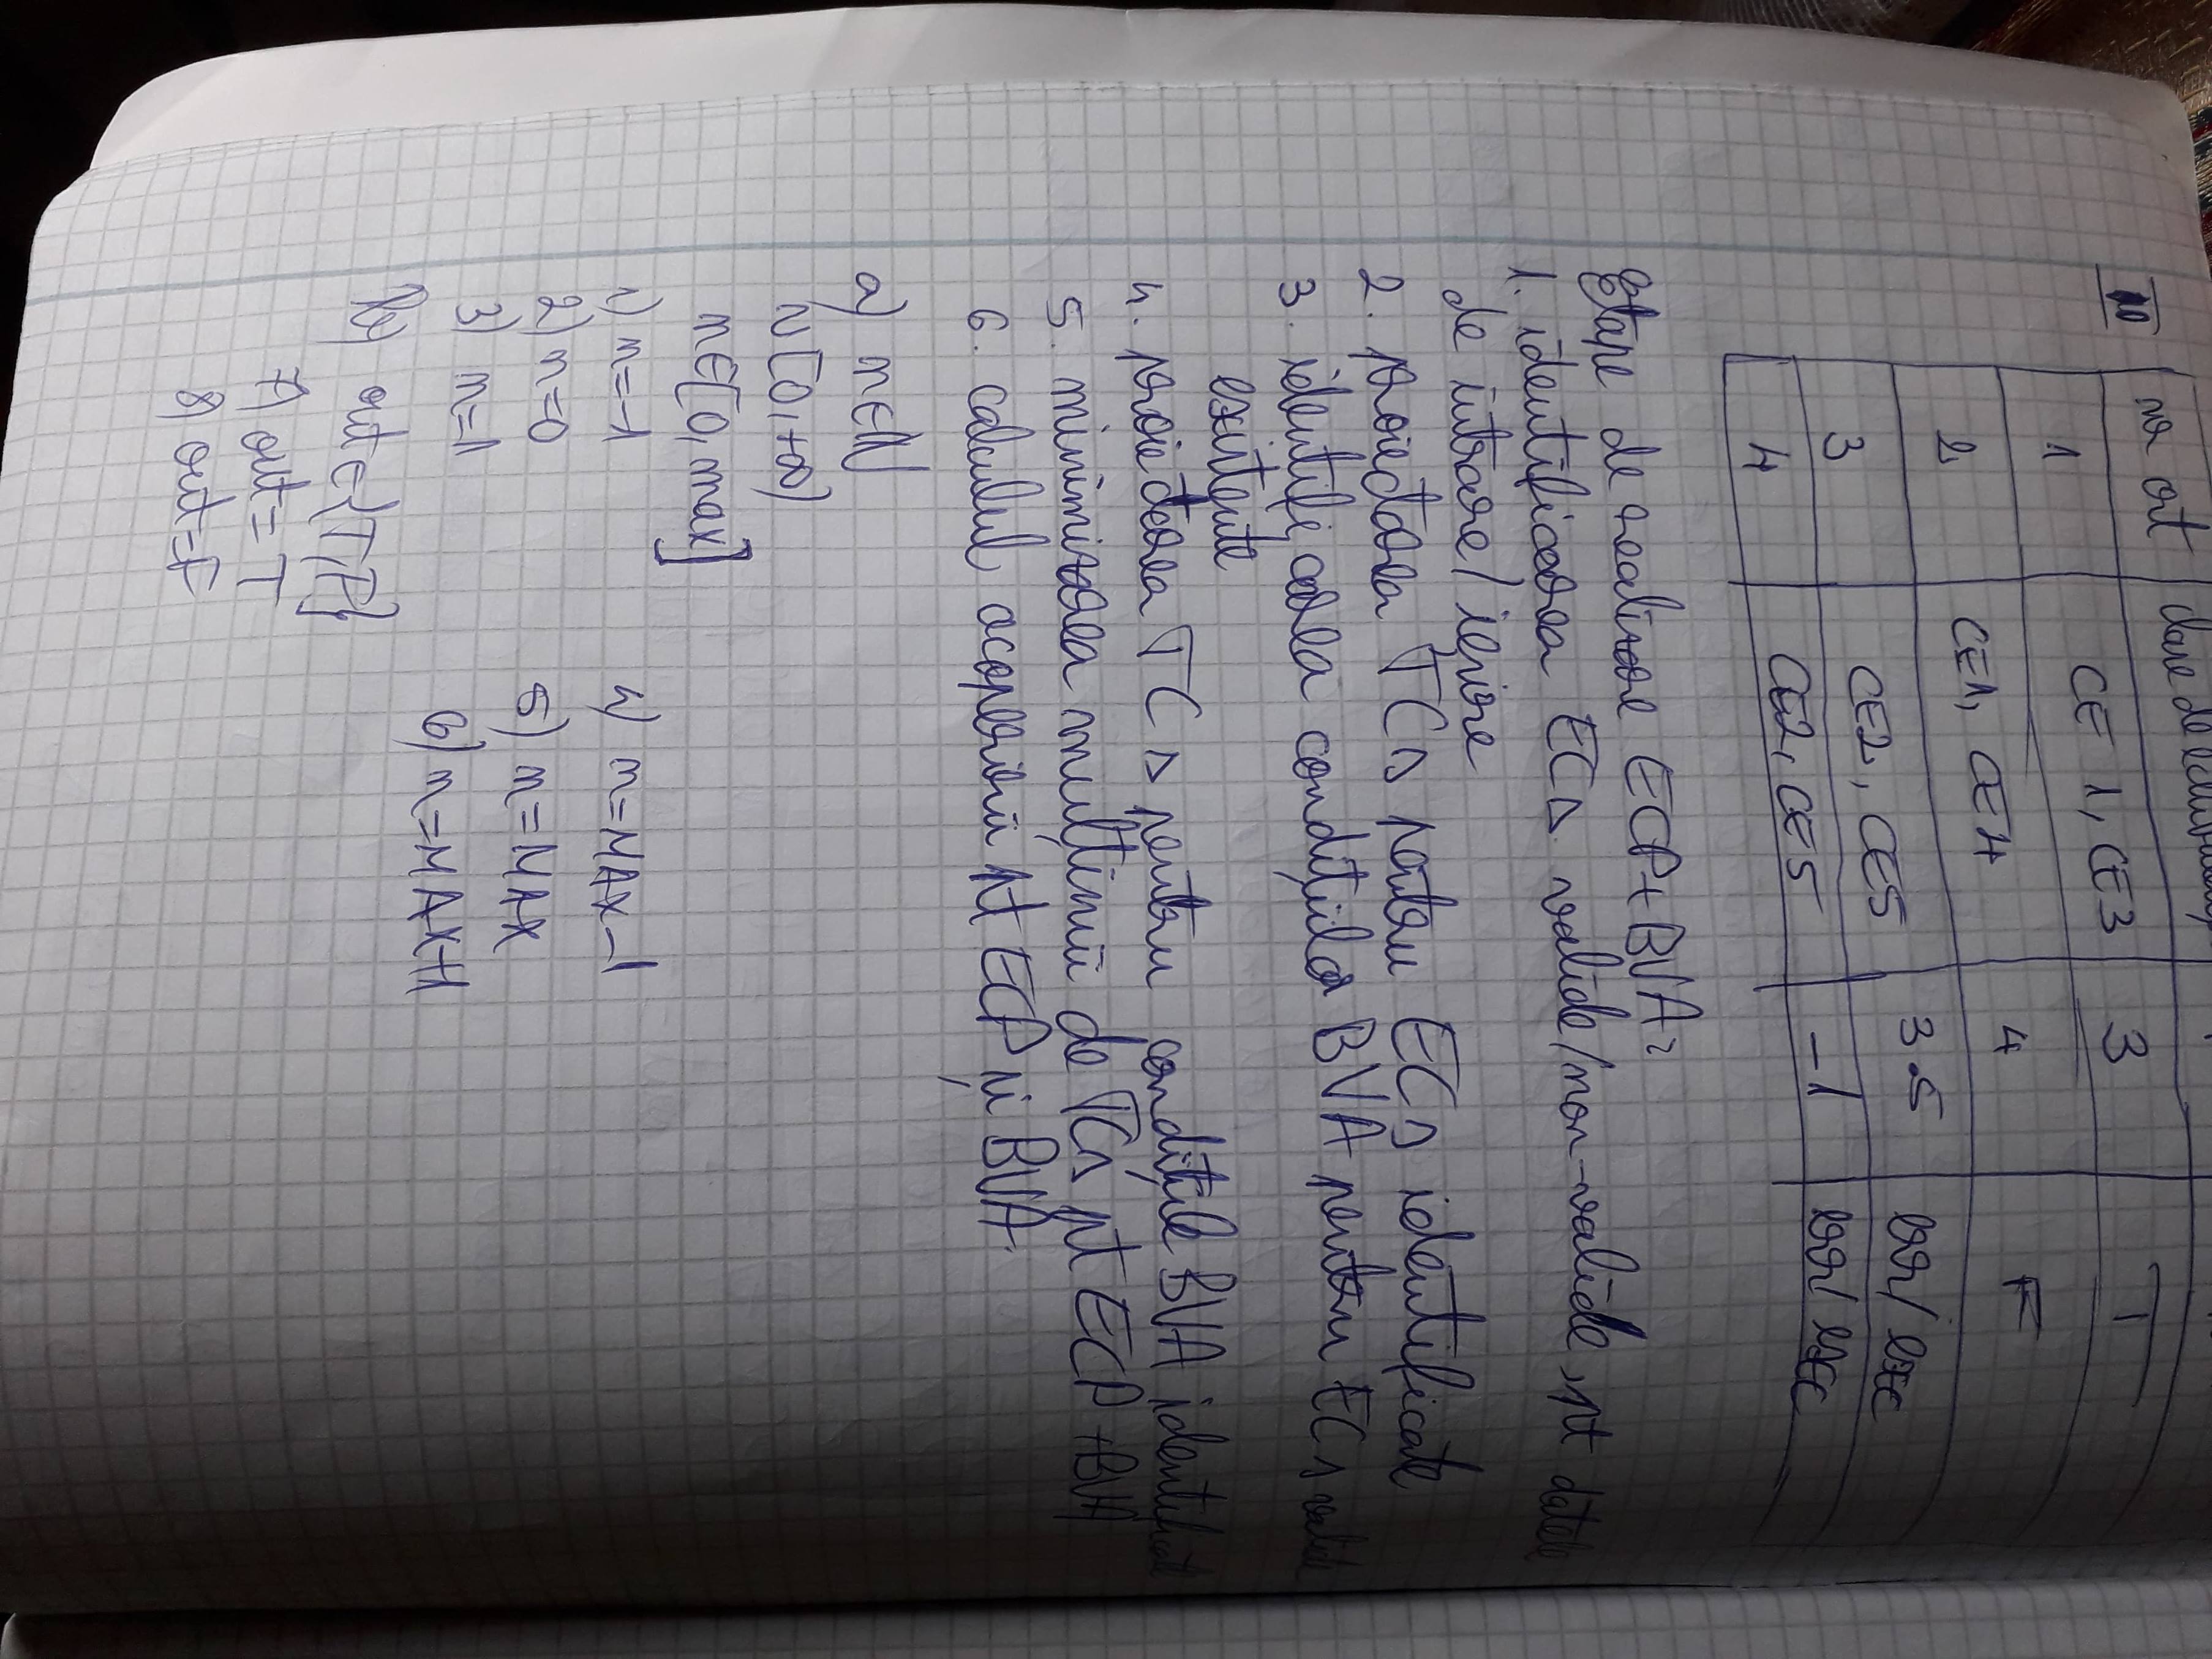 nr crt clase de echivalență
1 CE 1, CE3 3 T
2 CE1, CE4 4 F
3 CE2, CE5 3.5 err/ exc
4 CE2, CE5 -1 err/ exc
Etape de realizare ECP+BVA:
1. identificarea ECs valide/non-valide, pt datele
de intrare/ ieșire
2. proiectarea TCs pentru ECs identificate
3. identificarea condițiilor BVA pentru ECs valide
existente
4. proiectarea TCs pentru condițiile BVA identificate
5. minimizarea mulțimii de TCs pt ECP +BVA
6. calculul acoperirii pt ECP și BVA.
a) n∈ℕ
[0,+∞)
n∈[0, max]
1) n=-1 4) n=MAX-1
2) n=0 5) n=MAX
3) n=1 6) n=MAX+1
b) out∈{T,F}
7) out= T
8) out=F